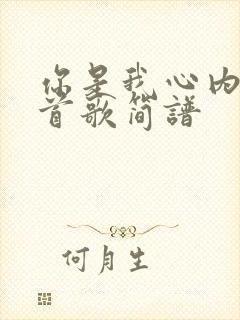 你是我心内
首歌简谱
何月生